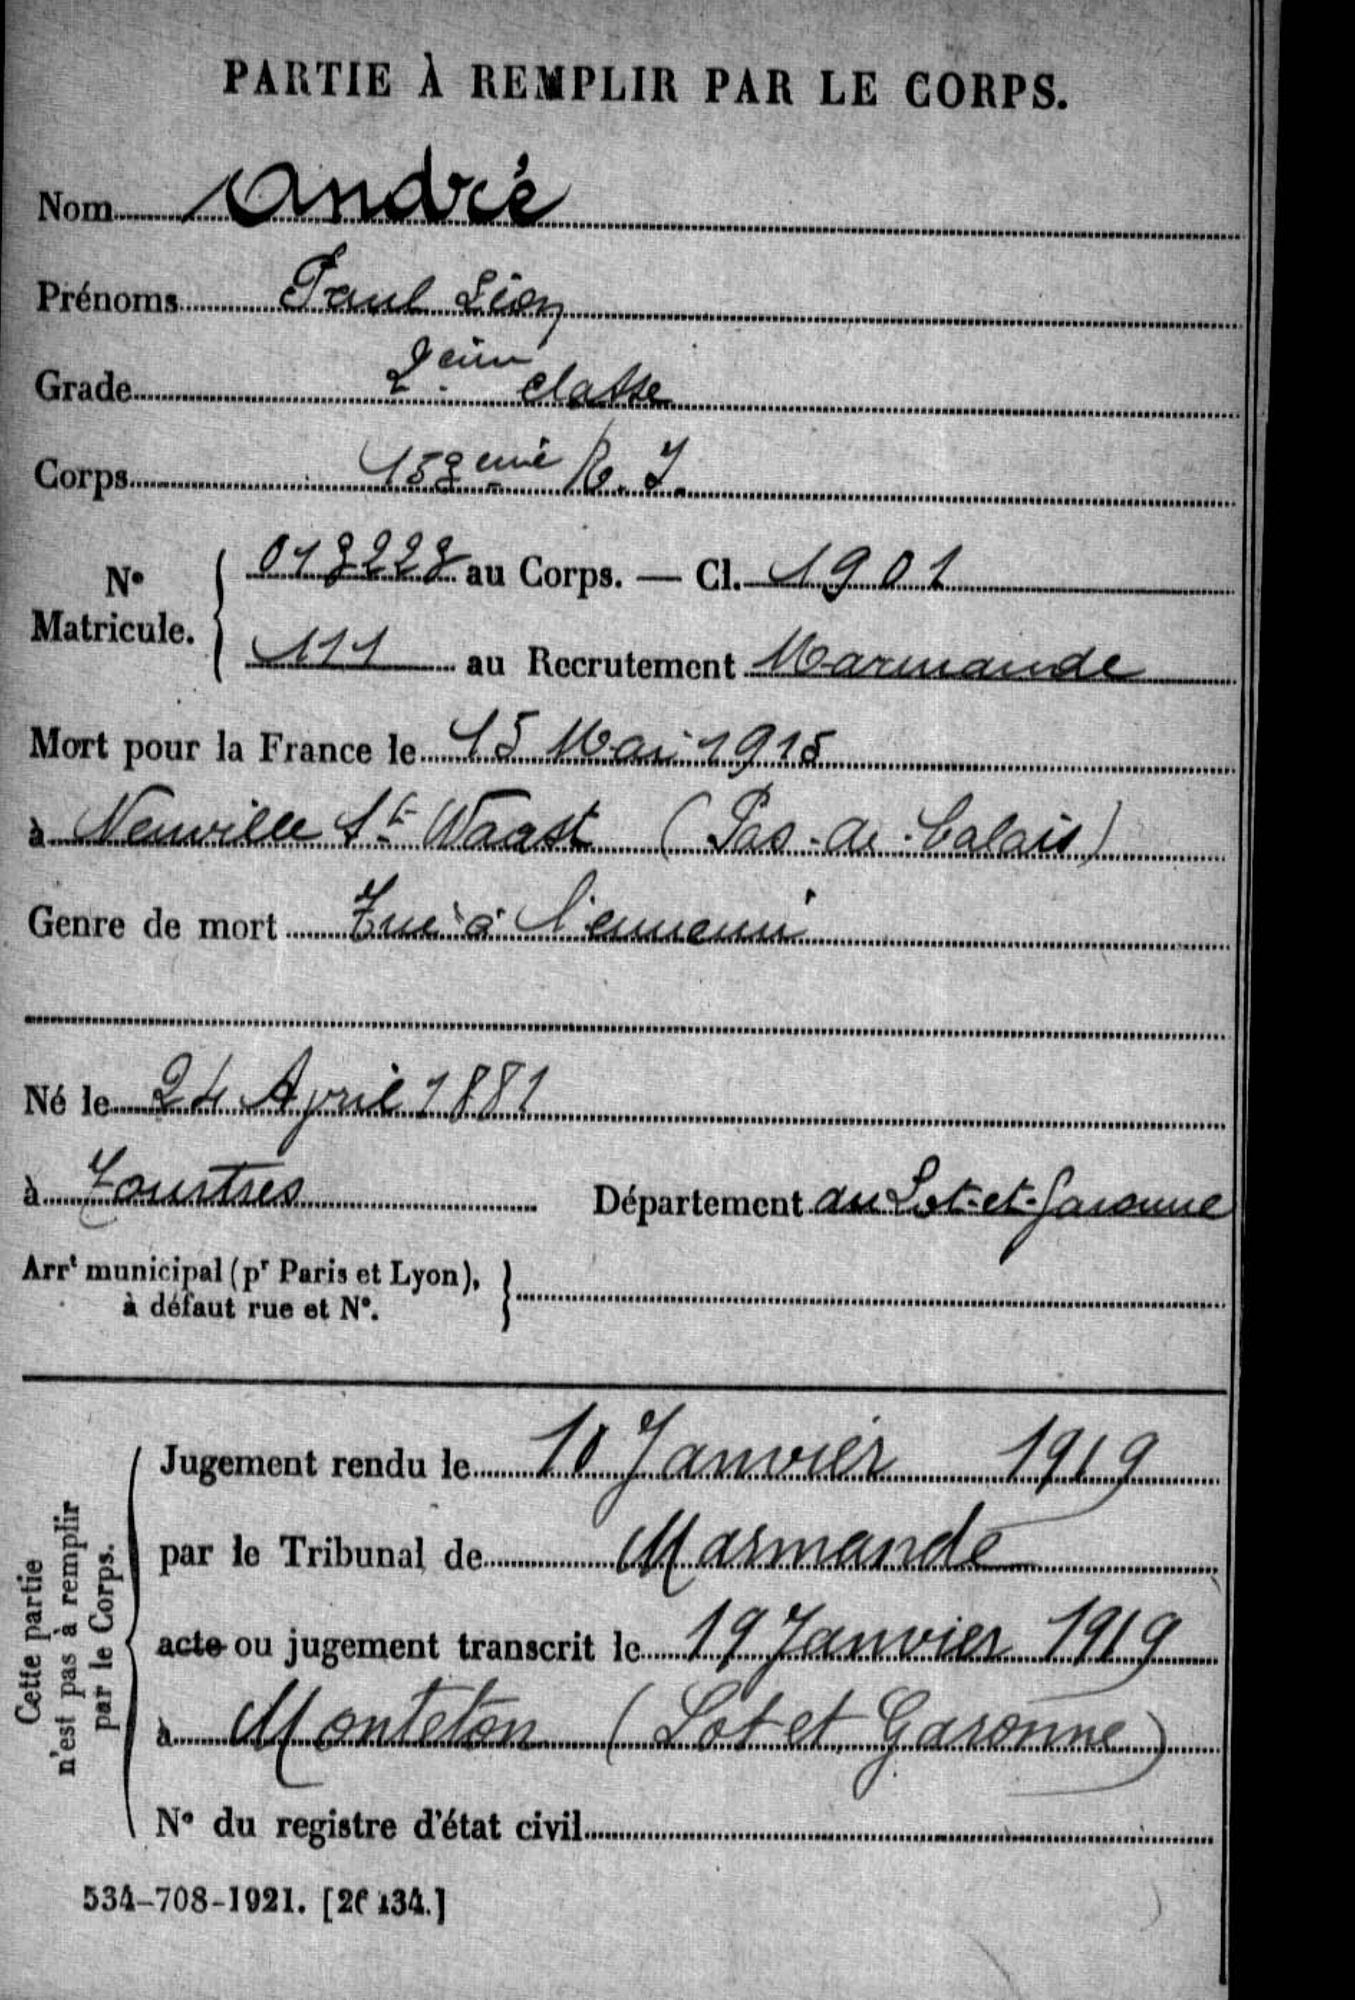 PARTIE À REMPLIR PAR LE CORPS.
Nom André
Prénoms Paul Léon
Grade 2eme classe
Corps 158eme R. I.
N° Matricule. au Corps. — Cl. 1901
111 au Recrutement Marmande
Mort pour la France le 15 Mai 1915
à Neuville St Waast (Pas-de-Calais)
Genre de mort Tué à l'ennemi
Né le 24 Avril 1881
à Tourtres Département du Lot-et-Garonne
Arrt municipal (pr Paris et Lyon),
à défaut rue et N°.
Cette partie
n'est pas à remplir
par le Corps.
Jugement rendu le 10 Janvier 1919
par le Tribunal de Marmande
acte ou jugement transcrit le 19 Janvier 1919
à Monteton (Lot et Garonne)
N° du registre d'état civil
534-708-1921. [26134.]